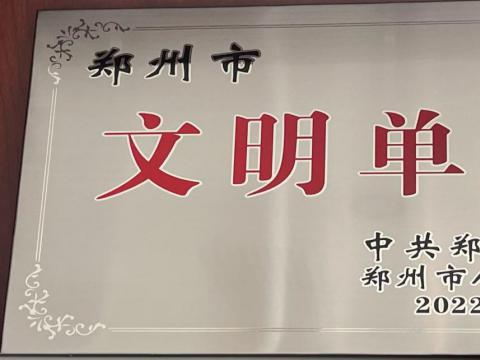 郑州市
文明单
中共郑
郑州市
2022